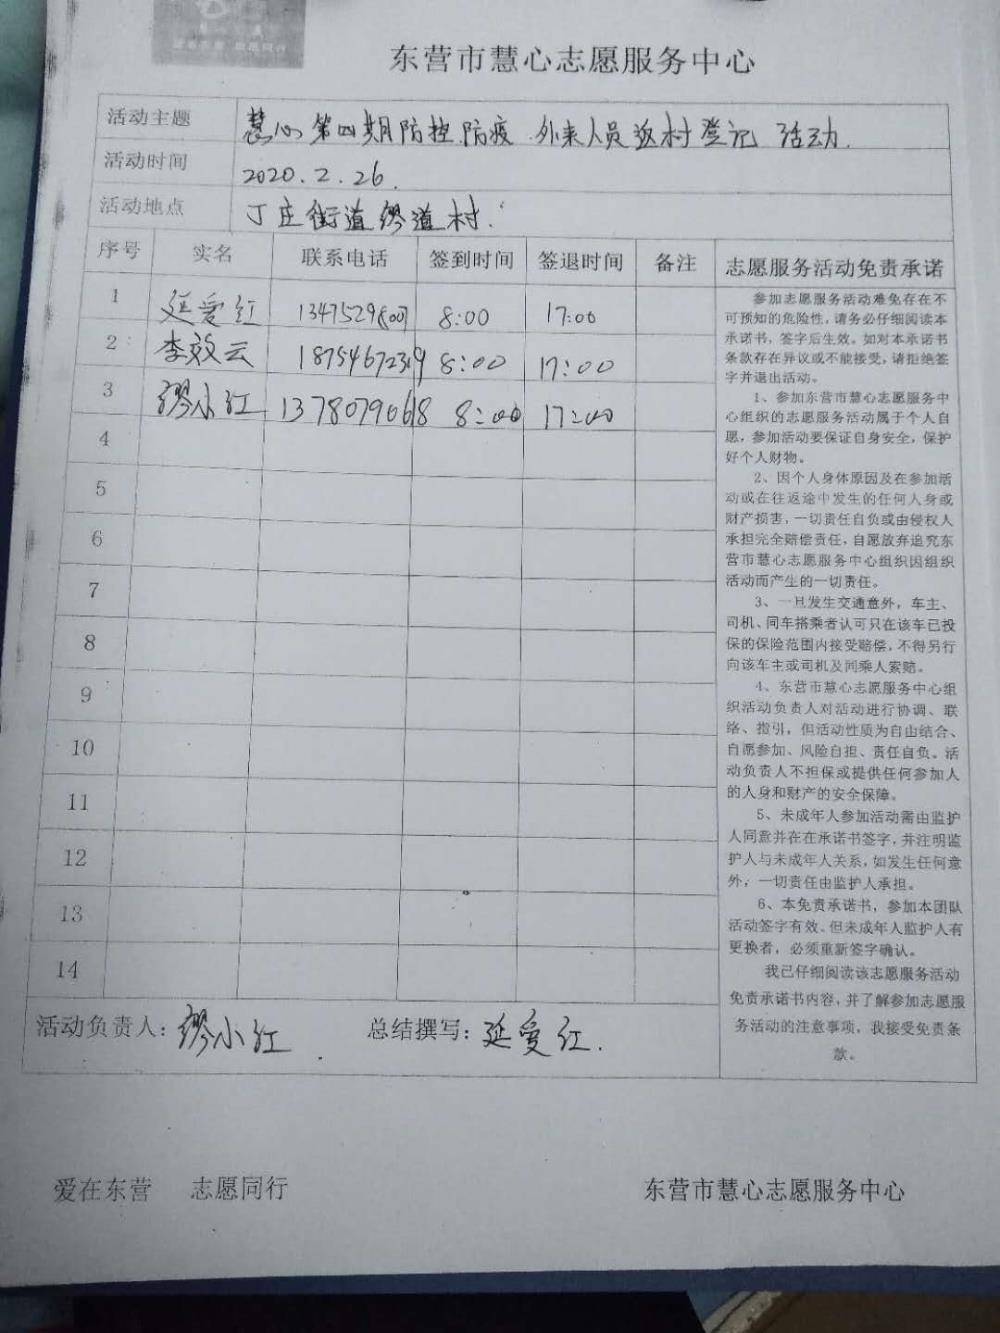 东营市慧心志愿服务中心
活动主题 慧心第四期防控防疫 外来人员返村登记 活动.
活动时间 2020.2.26.
活动地点 丁庄街道缪道村.
序号 实名 联系电话 签到时间 签退时间 备注 志愿服务活动免责承诺
1 延爱红 8:00 17:00
2 李效云 18754672319 8:00 17:00
3 缪小红 13780790618 8:00 17:00
4
5
6
7
8
9
10
11
12
13
14
参加志愿服务活动难免存在不
可预知的危险性,请务必仔细阅读本
承诺书,签字后生效。如对本承诺书
条款存在异议或不能接受,请拒绝签
字并退出活动。
1、参加东营市慧心志愿服务中
心组织的志愿服务活动属于个人自
愿,参加活动要保证自身安全,保护
好个人财物。
2、因个人身体原因及在参加活
动或在往返途中发生的任何人身或
财产损害,一切责任自负或由侵权人
承担完全赔偿责任,自愿放弃追究东
营市慧心志愿服务中心组织因组织
活动而产生的一切责任。
3、一旦发生交通意外,车主、
司机、同车搭乘者认可只在该车已投
保的保险范围内接受赔偿,不得另行
向该车主或司机及同乘人索赔。
4、东营市慧心志愿服务中心组
织活动负责人对活动进行协调、联
络、指引,但活动性质为自由结合、
自愿参加、风险自担、责任自负。活
动负责人不担保或提供任何参加人
的人身和财产的安全保障。
5、未成年人参加活动需由监护
人同意并在在承诺书签字,并注明监
护人与未成年人关系,如发生任何意
外,一切责任由监护人承担。
6、本免责承诺书,参加本团队
活动签字有效、但未成年人监护人有
更换者,必须重新签字确认。
我已仔细阅读该志愿服务活动
免责承诺书内容,并了解参加志愿服
务活动的注意事项,我接受免责条
款。
活动负责人:缪小红. 总结撰写:延爱红.
爱在东营 志愿同行 东营市慧心志愿服务中心